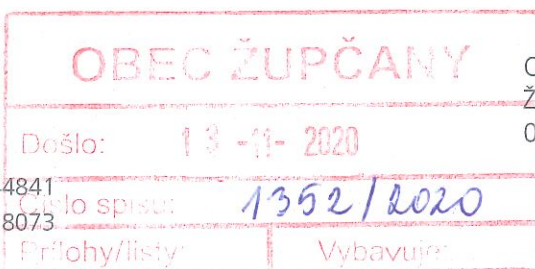 OBEC ŽUPČANY
Došlo: 13 -11- 2020
4841
Číslo spisu: 1352/2020
8073
Prílohy/listy: Vybavuje: